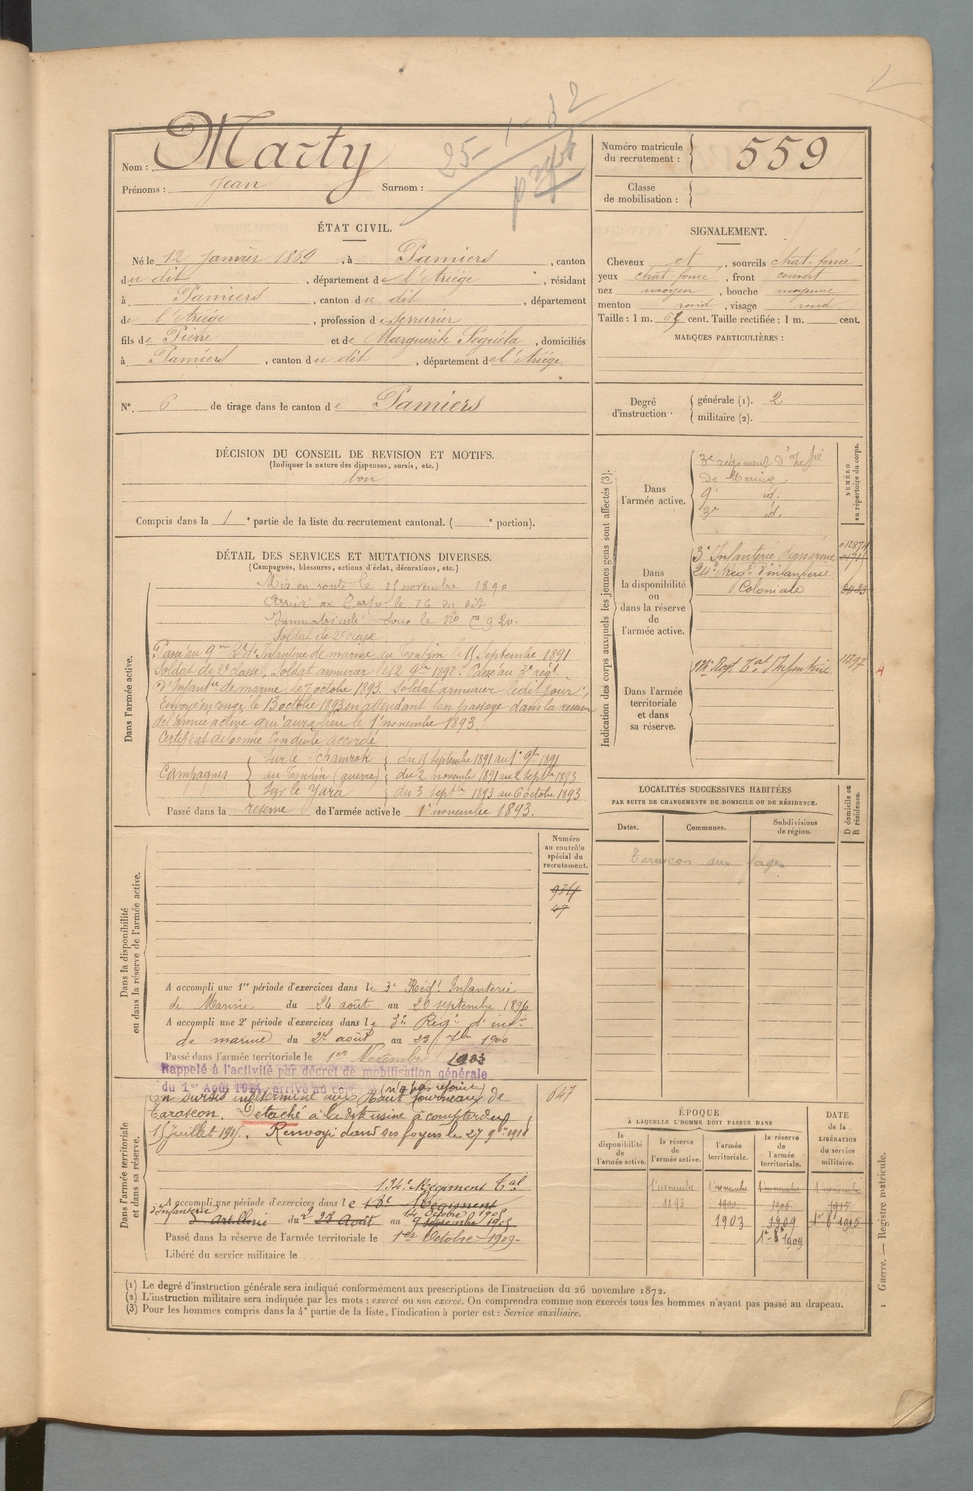 25-1-32
Nom : Marty
Prénoms : Jean Surnom :
Numéro matricule du recrutement : 559
Classe de mobilisation :
ÉTAT CIVIL.
Né le 12 Janvier 1869, à Pamiers, canton
du dit, département de l'Ariège, résidant
à Pamiers, canton du dit, département
de l'Ariège, profession de serrurier
fils de Pierre et de Marguerite Séguéla, domiciliés
à Pamiers, canton du dit, département de l'Ariège
N° 6 de tirage dans le canton de Pamiers
SIGNALEMENT.
Cheveux et, sourcils chat. foncé
yeux chat. foncé, front couvert
nez moyen, bouche moyenne
menton rond, visage rond
Taille : 1 m. cent. Taille rectifiée : 1 m. cent.
MARQUES PARTICULIÈRES :
Degré d'instruction. générale (1). 2
militaire (2).
DÉCISION DU CONSEIL DE REVISION ET MOTIFS.
(Indiquer la nature des dispenses, sursis, etc.)
bon
Compris dans la 1e partie de la liste du recrutement cantonal. ( e portion).
DÉTAIL DES SERVICES ET MUTATIONS DIVERSES.
(Campagnes, blessures, actions d'éclat, décorations, etc.)
Dans l'armée active.
Mis en route le 15 novembre 1890
Arrivé au Corps le 16 du dit
Immatriculé sous le No C 920.
Soldat de 2e classe
Passé au 9me Rt d'Infanterie de marine au Tonkin le 15 Septembre 1891
Soldat de 2e classe, Soldat armurier le 12 9bre 1892. Passé au 3e régt
d'Infantrie de marine le 7 octobre 1893 Soldat armurier ledit jour,
Envoyé en congé le 13 octobre 1893 en attendant son passage dans la réserve
de l'armée active qui aura lieu le 1er novembre 1893.
Certificat de bonne conduite accordé
Campagnes
Sur le Chamrok du 15 Septembre 1891 au 1er 9bre 1891
au Tonkin (guerre) du 2 novembre 1891 au 2 Septbre 1893
Sur le Yara du 3 Septbre 1893 au 6 octobre 1893
Passé dans la réserve de l'armée active le 1er novembre 1893.
Indication des corps auxquels les jeunes gens sont affectés (3).
NUMÉRO au répertoire du corps.
Dans l'armée active.
3e régiment d'Infrie
de Marine
9e id.
3e id.
Dans la disponibilité ou dans la réserve de l'armée active.
3e Infanterie de marine
24e Régt d'infanterie
Coloniale
Dans l'armée territoriale et dans sa réserve.
134e Régt Tal d'Infanterie
4
LOCALITÉS SUCCESSIVES HABITÉES
PAR SUITE DE CHANGEMENTS DE DOMICILE OU DE RÉSIDENCE.
Dates. Communes. Subdivisions de région. D domicile ou R résidence.
Tarascon aux forges
Dans la disponibilité ou dans la réserve de l'armée active.
Numéro au contrôle spécial du recrutement.
A accompli une 1re période d'exercices dans le 3e Régt Infanterie
de Marine du 24 août au 20 septembre 1896
A accompli une 2e période d'exercices dans le 3e Régt d'infie
de marine du 27 août au 23 7bre 1900
Passé dans l'armée territoriale le 1er Novembre 1903
Rappelé à l'activité par décret de mobilisation générale
du 1er Août 1914, arrivé au corps (n'a pas rejoint)
Dans l'armée territoriale et dans sa réserve.
En sursis indéterminé aux Haut fourneaux de
Tarascon. Détaché à la dite usine à compter du
15 Juillet 1917. Renvoyé dans ses foyers le 27 9bre 1918
647
134e Régiment Tal
A accompli une période d'exercices dans le 18e Régiment
d'infanterie d'Artillerie du 27 Août au 9 septembre 1905
Octobre 1905
Passé dans la réserve de l'armée territoriale le 1er Octobre 1909
Libéré du service militaire le
ÉPOQUE
À LAQUELLE L'HOMME DOIT PASSER DANS
la disponibilité de l'armée active. la réserve de l'armée active. l'armée territoriale. la réserve de l'armée territoriale.
DATE de la LIBÉRATION du service militaire.
1 novembre 1 novembre 1 novembre 1 novembre
1893
1903 1909 1er 8bre 1915
1er 8bre 1909
(1) Le degré d'instruction générale sera indiqué conformément aux prescriptions de l'instruction du 26 novembre 1872.
(2) L'instruction militaire sera indiquée par les mots : exercé ou non exercé. On comprendra comme non exercés tous les hommes n'ayant pas passé au drapeau.
(3) Pour les hommes compris dans la 4e partie de la liste, l'indication à porter est : Service auxiliaire.
1 Guerre. — Registre matricule.